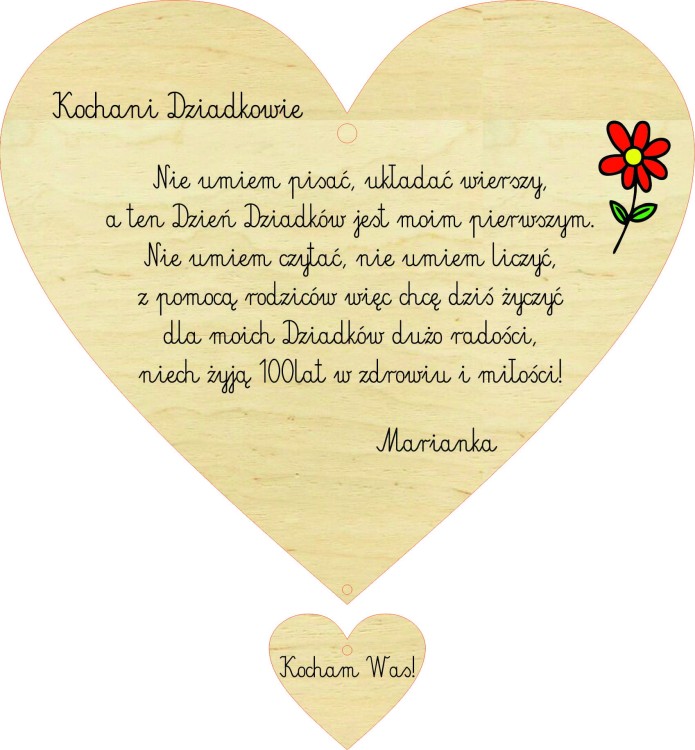 Kochani Dziadkowie
Nie umiem pisać, układać wierszy,
a ten Dzień Dziadków jest moim pierwszym.
Nie umiem czytać, nie umiem liczyć,
z pomocą rodziców więc chcę dziś życzyć
dla moich Dziadków dużo radości,
niech żyją 100lat w zdrowiu i miłości!
Marianka
Kocham Was!